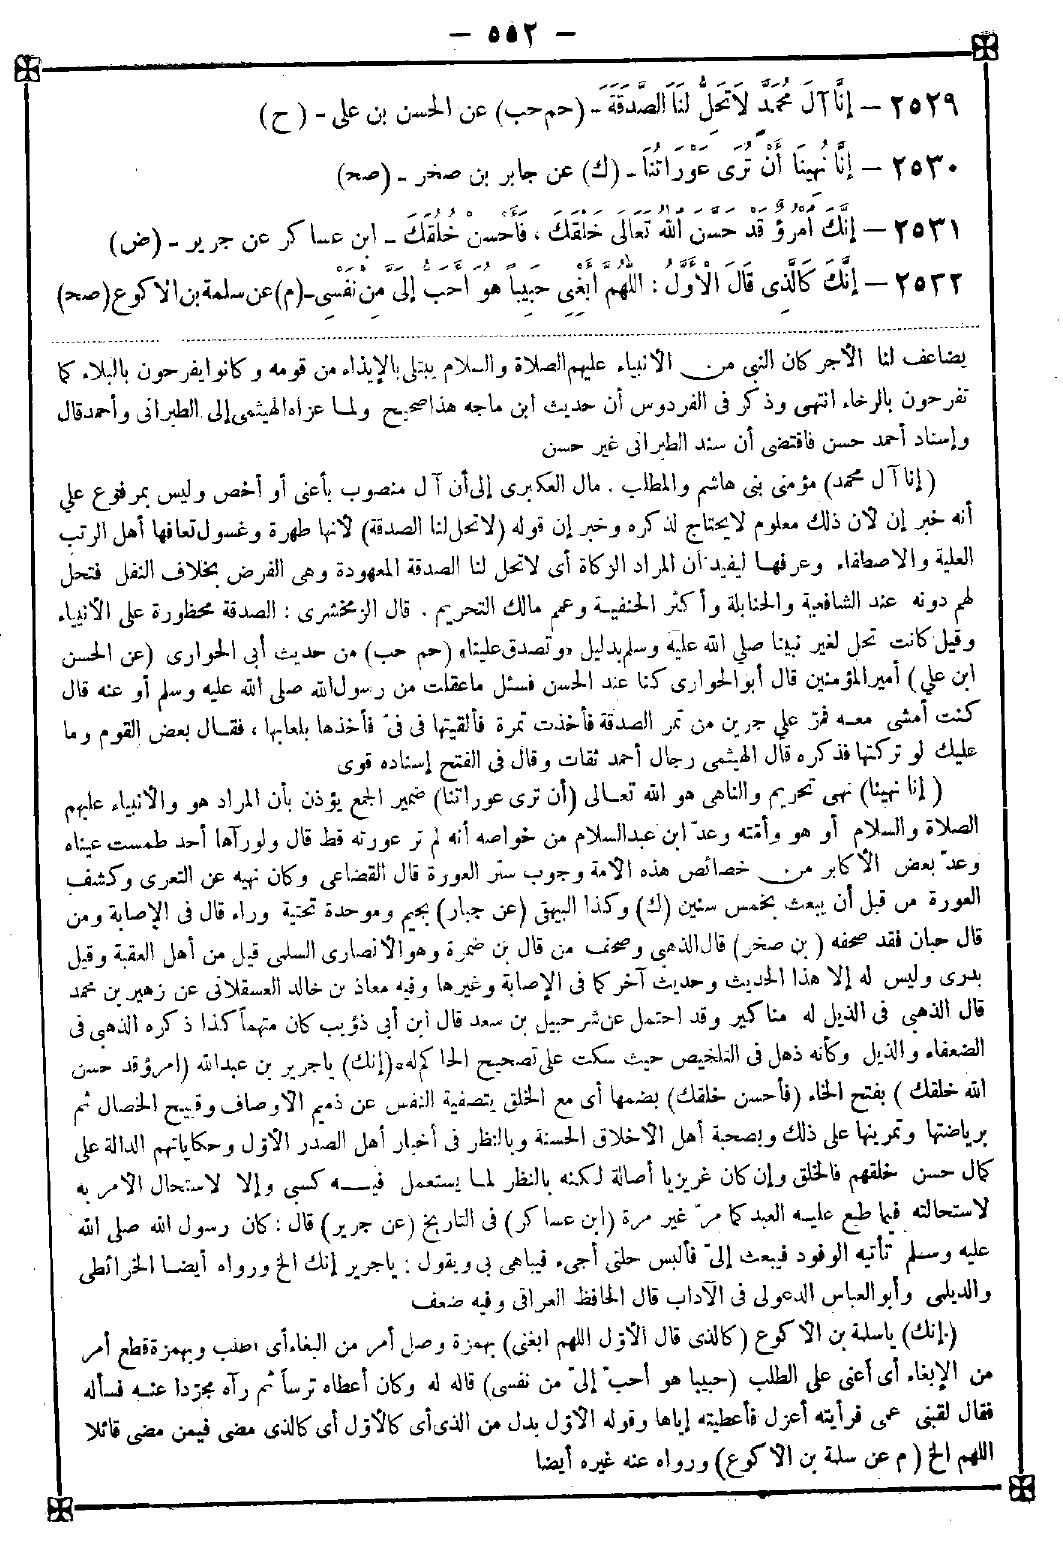 — ٥٥٢ —
٢٥٢٩ — إِنَّا آلَ مُحَمَّدٍ لَا تَحِلُّ لَنَا الصَّدَقَةُ - (حم حب) عن الحسن بن على - (ح)
٢٥٣٠ — إِنَّا نُهِينَا أَنْ تُرَى عَوْرَاتُنَا - (ك) عن جابر بن صخر - (صح)
٢٥٣١ — إِنَّكَ امْرُؤٌ قَدْ حَسَّنَ اللهُ تَعَالَى خَلْقَكَ ، فَأَحْسِنْ خُلُقَكَ - ابن عساكر عن جرير - (ض)
٢٥٣٢ — إِنَّكَ كَالَّذِى قَالَ الْأَوَّلُ : اللَّهُمَّ أَبْغِنِى حَبِيباً هُوَ أَحَبُّ إِلَىَّ مِنْ نَفْسِى - (م) عن سلمة بن الاكوع (صح)
يضاعف لنا الأجر كان النبى من الأنبياء عليهم الصلاة والسلام يبتلى بالإيذاء من قومه وكانوا يفرحون بالبلاء كما
تفرحون بالرخاء انتهى وذكر فى الفردوس أن حديث ابن ماجه هذا صحيح ولما عزاه الهيثمى إلى الطبرانى وأحمد قال
وإسناد أحمد حسن فاقتضى أن سند الطبرانى غير حسن
(إنا آل محمد) مؤمنى بنى هاشم والمطلب . مال العكبرى إلى أن آل منصوب بأعنى أو أخص وليس بمرفوع على
أنه خبر إن لأن ذلك معلوم لا يحتاج لذكره وخبر إن قوله (لا تحل لنا الصدقة) لأنها طهرة وغسول تعافها أهل الرتب
العلية والاصطفاء وعرفها ليفيد أن المراد الزكاة أى لا تحل لنا الصدقة المعهودة وهى الفرض بخلاف النفل فتحل
لهم دونه عند الشافعية والحنابلة وأكثر الحنفية وعمم مالك التحريم . قال الزمخشرى : الصدقة محظورة على الأنبياء
وقيل كانت تحل لغير نبينا صلى الله عليه وسلم بدليل «وتصدق علينا» (حم حب) من حديث أبى الحوارى (عن الحسن
ابن على) أمير المؤمنين قال أبو الحوارى كنا عند الحسن فسئل ما عقلت من رسول الله صلى الله عليه وسلم أو عنه قال
كنت أمشى معه فمرّ على جرين من تمر الصدقة فأخذت تمرة فألقيتها فى فىّ فأخذها بلعابها ، فقال بعض القوم وما
عليك لو تركتها فذكره قال الهيثمى رجال أحمد ثقات وقال فى الفتح إسناده قوى
(إنا نهينا) نهى تحريم والناهى هو الله تعالى (أن ترى عوراتنا) ضمير الجمع يؤذن بأن المراد هو والأنبياء عليهم
الصلاة والسلام أو هو وأمّته وعدّ ابن عبدالسلام من خواصه أنه لم تر عورته قط قال ولو رآها أحد طمست عيناه
وعدّ بعض الأكابر من خصائص هذه الأمة وجوب ستر العورة قال القضاعى وكان نهيه عن التعرى وكشف
العورة من قبل أن يبعث بخمس سنين (ك) وكذا البيهقى (عن جبار) بجيم وموحدة تحتية وراء قال فى الإصابة ومن
قال حبان فقد صحفه (بن صخر) قال الذهبى وصحف من قال بن ضمرة وهو الأنصارى السلمى قيل من أهل العقبة وقيل
بدرى وليس له إلا هذا الحديث وحديث آخر كما فى الإصابة وغيرها وفيه معاذ بن خالد العسقلانى عن زهير بن محمد
قال الذهبى فى الذيل له مناكير وقد احتمل عن شرحبيل بن سعد قال ابن أبى ذؤيب كان متهماً كذا ذكره الذهبى فى
الضعفاء والذيل وكأنه ذهل فى التلخيص حيث سكت على تصحيح الحاكم له (إنك) يا جرير بن عبدالله (امرؤ قد حسن
الله خلقك) بفتح الخاء (فأحسن خلقك) بضمها أى مع الخلق بتصفية النفس عن ذميم الأوصاف وقبيح الخصال ثم
برياضتها وتمرينها على ذلك وبصحبة أهل الأخلاق الحسنة وبالنظر فى أخبار أهل الصدر الأوّل وحكاياتهم الدالة على
كمال حسن خلقهم فالخلق وإن كان غريزيا أصالة لكنه بالنظر لما يستعمل فيه كسبى وإلا لاستحال الأمر به
لاستحالته فيما طبع عليه العبد كما مرّ غير مرة (ابن عساكر) فى التاريخ (عن جرير) قال : كان رسول الله صلى الله
عليه وسلم تأتيه الوفود فيبعث إلىّ فألبس حلتى أجىء فيباهى بى ويقول : يا جرير إنك الخ ورواه أيضا الخرائطى
والديلمى وأبو العباس الدعولى فى الآداب قال الحافظ العراقى وفيه ضعف
(إنك) يا سلمة بن الاكوع (كالذى قال الأوّل اللهم ابغنى) بهمزة وصل أمر من البغاء أى اطلب وبهمزة قطع أمر
من الإبغاء أى أعنى على الطلب (حبيبا هو أحبّ إلىّ من نفسى) قاله له وكان أعطاه ترساً ثم رآه مجرّدا عنه فسأله
فقال لقينى عمى فرأيته أعزل فأعطيته إياها وقوله الأوّل بدل من الذى أى كالأوّل أى كالذى مضى فيمن مضى قائلا
اللهم الخ (م عن سلمة بن الاكوع) ورواه عنه غيره أيضا